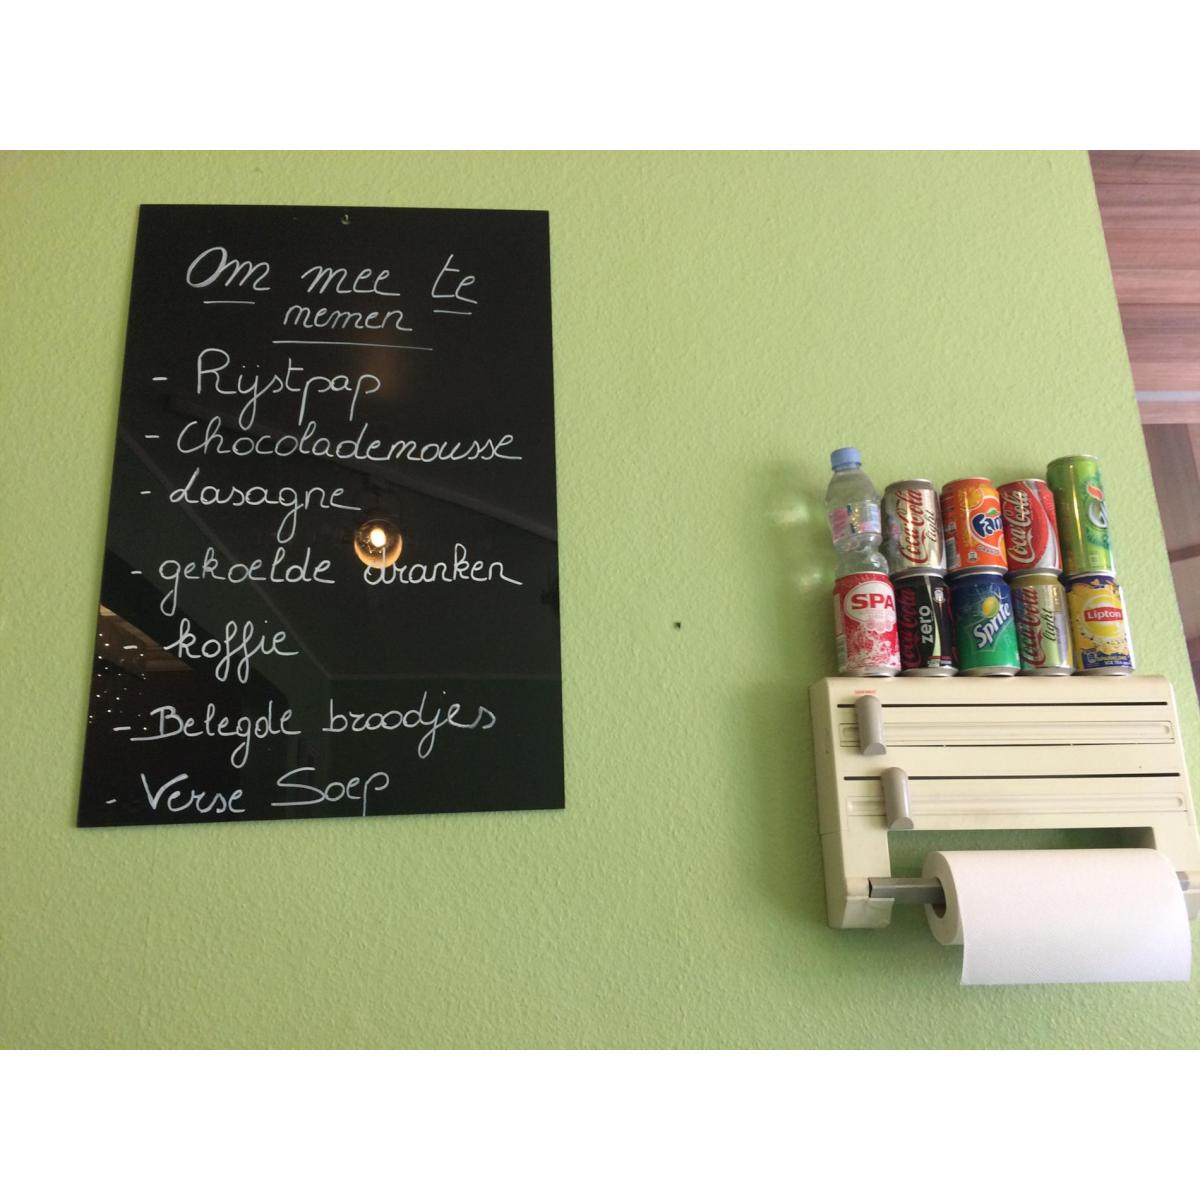 Om mee te
nemen
- Rijstpap
- Chocolademousse
- Lasagne
- gekoelde dranken
- koffie
- Belegde broodjes
- Verse Soep
Coca-Cola light
Fan
Coca-Cola
SPA
Coca-Cola zero
Sprite
Coca-Cola light
Lipton
ICE TEA